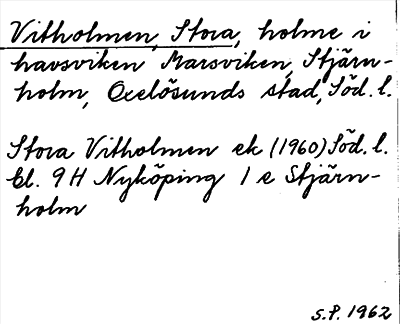 Vitholmen, Stora, holme i
havsviken Marsviken, Stjärn-
holm, Oxelösunds stad, Söd. l.
Stora Vitholmen ek (1960) Söd. l.
bl. 9 H Nyköping 1 e Stjärn-
holm
S.P. 1962